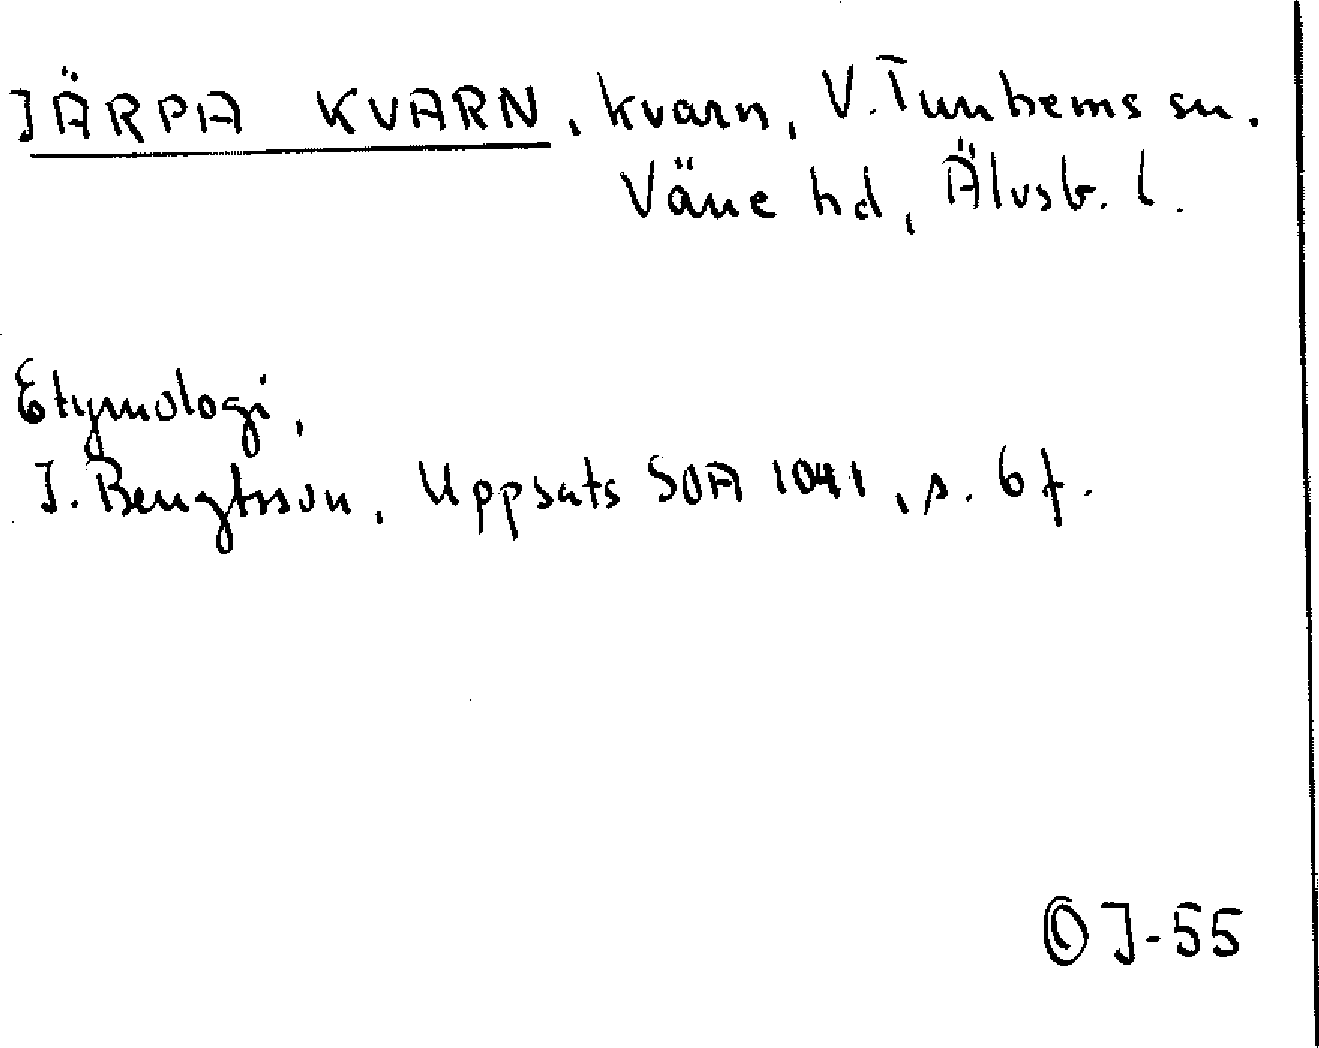 JÄRPA KVARN, kvarn, V. Tunhems sn.
Väne hd, Älvsb. l.
Etymologi,
I. Bengtsson, Uppsats SOA 1041, s. 6 f.
J-55